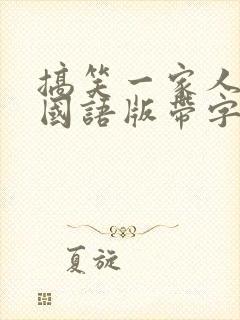 搞笑一家人
國語版帶字
夏旋